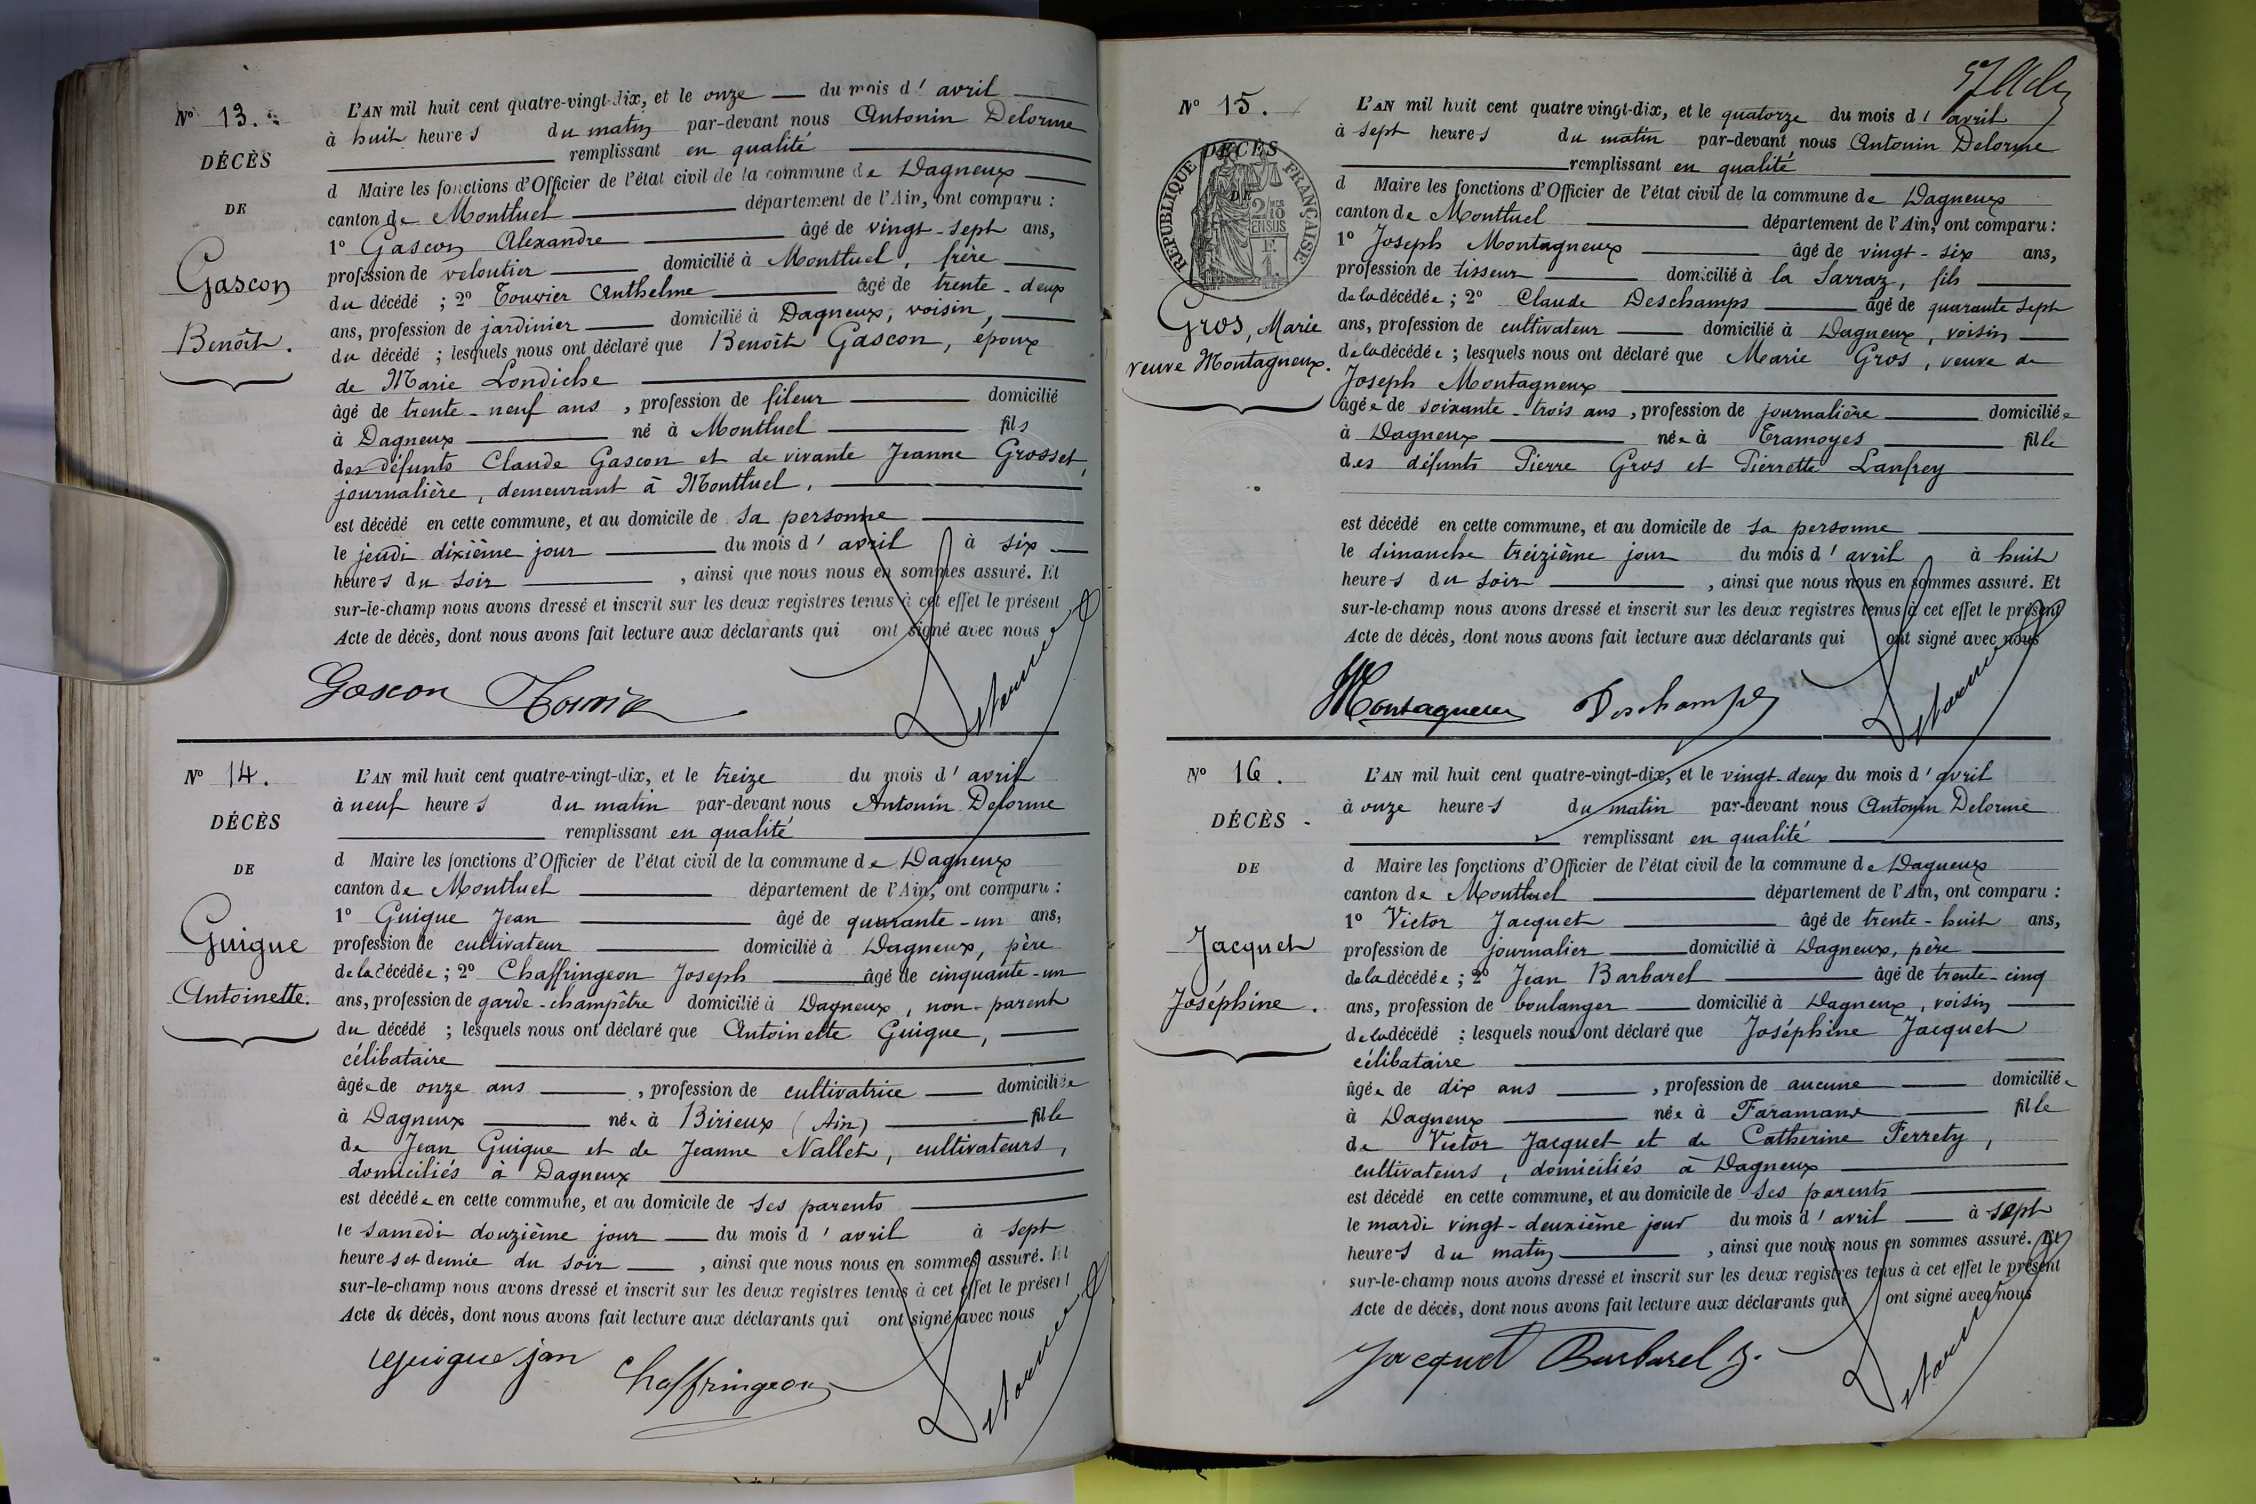 Nº 13.
DÉCÈS
DE
Gascon
Benoît.
L'AN mil huit cent quatre-vingt-dix, et le onze du mois d' avril
à huit heures du matin par-devant nous Antonin Delorme
remplissant en qualité
d Maire les fonctions d'Officier de l'état civil de la commune de Dagneux
canton de Montluel département de l'Ain, ont comparu :
1º Gascon Alexandre âgé de vingt-sept ans,
profession de veloutier domicilié à Montluel, frère
du décédé ; 2º Touvier Anthelme âgé de trente-deux
ans, profession de jardinier domicilié à Dagneux, voisin,
du décédé ; lesquels nous ont déclaré que Benoît Gascon, époux
de Marie Londiche
âgé de trente-neuf ans, profession de fileur domicilié
à Dagneux né à Montluel fils
des défunts Claude Gascon et de vivante Jeanne Grosset,
journalière, demeurant à Montluel,
est décédé en cette commune, et au domicile de sa personne
le jeudi dixième jour du mois d' avril à six
heures du soir, ainsi que nous nous en sommes assuré. Et
sur-le-champ nous avons dressé et inscrit sur les deux registres tenus à cet effet le présent
Acte de décès, dont nous avons fait lecture aux déclarants qui ont signé avec nous
Gascon Delorme
Nº 14.
DÉCÈS
DE
Guigue
Antoinette.
L'AN mil huit cent quatre-vingt-dix, et le treize du mois d' avril
à neuf heures du matin par-devant nous Antonin Delorme
remplissant en qualité
d Maire les fonctions d'Officier de l'état civil de la commune de Dagneux
canton de Montluel département de l'Ain, ont comparu :
1º Guigue Jean âgé de quarante-un ans,
profession de cultivateur domicilié à Dagneux, père
de la décédée ; 2º Chaffringeon Joseph âgé de cinquante-un
ans, profession de garde-champêtre domicilié à Dagneux, non-parent
du décédé ; lesquels nous ont déclaré que Antoinette Guigue,
célibataire
âgée de onze ans, profession de cultivatrice domiciliée
à Dagneux née à Birieux (Ain) fille
de Jean Guigue et de Jeanne Nallet, cultivateurs,
domiciliés à Dagneux
est décédée en cette commune, et au domicile de ses parents
le samedi douzième jour du mois d' avril à sept
heures et demie du soir, ainsi que nous nous en sommes assuré. Et
sur-le-champ nous avons dressé et inscrit sur les deux registres tenus à cet effet le présent
Acte de décès, dont nous avons fait lecture aux déclarants qui ont signé avec nous
Guigue jan Chaffringeon Delorme
Nº 15.
DÉCÈS
DE
RÉPUBLIQUE FRANÇAISE
Gros, Marie
veuve Montagneux.
L'AN mil huit cent quatre vingt-dix, et le quatorze du mois d' avril
à sept heures du matin par-devant nous Antonin Delorme
remplissant en qualité
d Maire les fonctions d'Officier de l'état civil de la commune de Dagneux
canton de Montluel département de l'Ain, ont comparu :
1º Joseph Montagneux âgé de vingt-six ans,
profession de tisseur domicilié à la Sarraz, fils
de la décédée ; 2º Claude Deschamps âgé de quarante sept
ans, profession de cultivateur domicilié à Dagneux, voisin
de la décédée ; lesquels nous ont déclaré que Marie Gros, veuve de
Joseph Montagneux
âgée de soixante-trois ans, profession de journalière domiciliée
à Dagneux née à Tramoyes fille
des défunts Pierre Gros et Pierrette Lanfrey
est décédé en cette commune, et au domicile de sa personne
le dimanche treizième jour du mois d' avril à huit
heures du soir, ainsi que nous nous en sommes assuré. Et
sur-le-champ nous avons dressé et inscrit sur les deux registres tenus à cet effet le présent
Acte de décès, dont nous avons fait lecture aux déclarants qui ont signé avec nous
Montagneux Deschamps Delorme
Nº 16.
DÉCÈS
DE
Jacquet
Joséphine.
L'AN mil huit cent quatre-vingt-dix, et le vingt-deux du mois d' avril
à onze heures du matin par-devant nous Antonin Delorme
remplissant en qualité
d Maire les fonctions d'Officier de l'état civil de la commune de Dagneux
canton de Montluel département de l'Ain, ont comparu :
1º Victor Jacquet âgé de trente-huit ans,
profession de journalier domicilié à Dagneux, père
de la décédée ; 2º Jean Barbarel âgé de trente-cinq
ans, profession de boulanger domicilié à Dagneux, voisin
de la décédé ; lesquels nous ont déclaré que Joséphine Jacquet
célibataire
âgée de dix ans, profession de aucune domiciliée
à Dagneux née à Faramans fille
de Victor Jacquet et de Catherine Ferrety,
cultivateurs, domiciliés à Dagneux
est décédé en cette commune, et au domicile de ses parents
le mardi vingt-deuxième jour du mois d' avril à sept
heures du matin, ainsi que nous nous en sommes assuré. Et
sur-le-champ nous avons dressé et inscrit sur les deux registres tenus à cet effet le présent
Acte de décès, dont nous avons fait lecture aux déclarants qui ont signé avec nous
Jacquet Barbarel J. Delorme